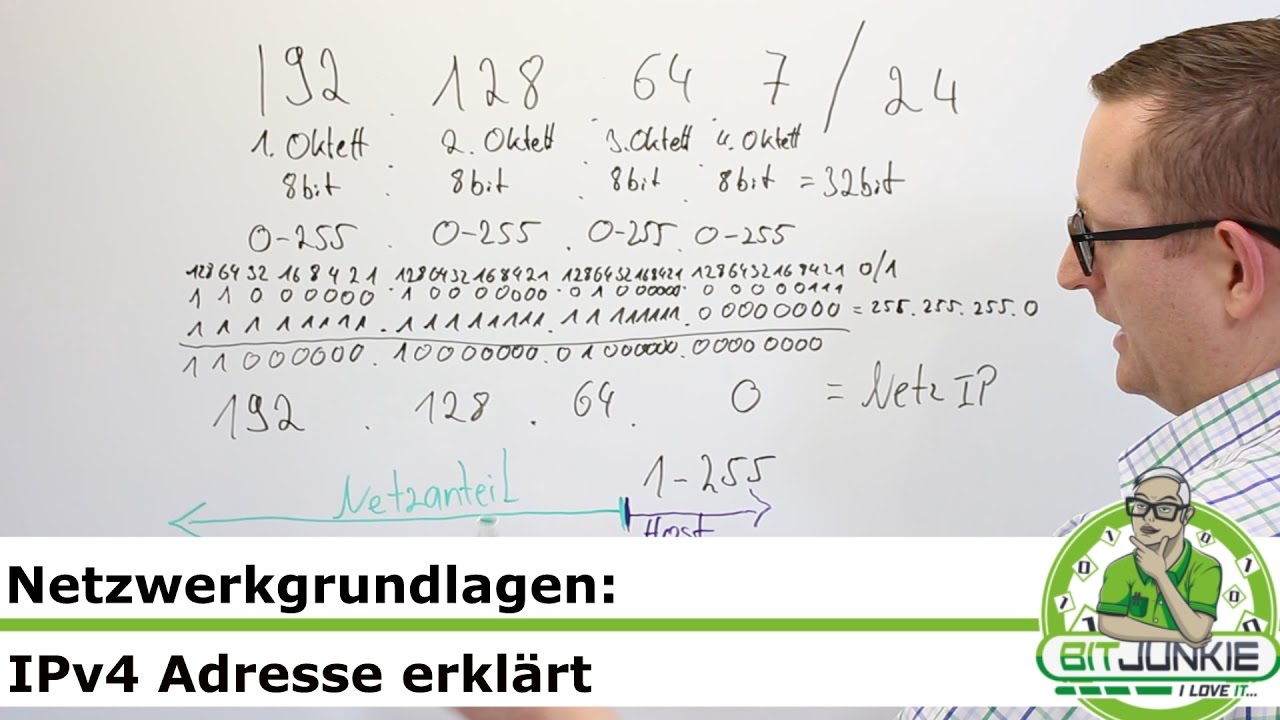 192 . 128 . 64 . 7 / 24
1. Oktett . 2. Oktett . 3. Oktett . 4. Oktett
8bit . 8bit . 8bit . 8bit = 32bit
0-255 . 0-255 . 0-255 . 0-255
128 64 32 16 8 4 2 1 . 128 64 32 16 8 4 2 1 . 128 64 32 16 8 4 2 1 . 128 64 32 16 8 4 2 1 0/1
1 1 0 0 0 0 0 0 . 1 0 0 0 0 0 0 0 . 0 1 0 0 0 0 0 0 . 0 0 0 0 0 1 1 1
1 1 1 1 1 1 1 1 . 1 1 1 1 1 1 1 1 . 1 1 1 1 1 1 1 1 . 0 0 0 0 0 0 0 0 = 255.255.255.0
1 1 0 0 0 0 0 0 . 1 0 0 0 0 0 0 0 . 0 1 0 0 0 0 0 0 . 0 0 0 0 0 0 0 0
192 . 128 . 64 . 0 = Netz IP
Netzanteil 1-255
Host
Netzwerkgrundlagen:
IPv4 Adresse erklärt
BITJUNKIE
I LOVE IT...